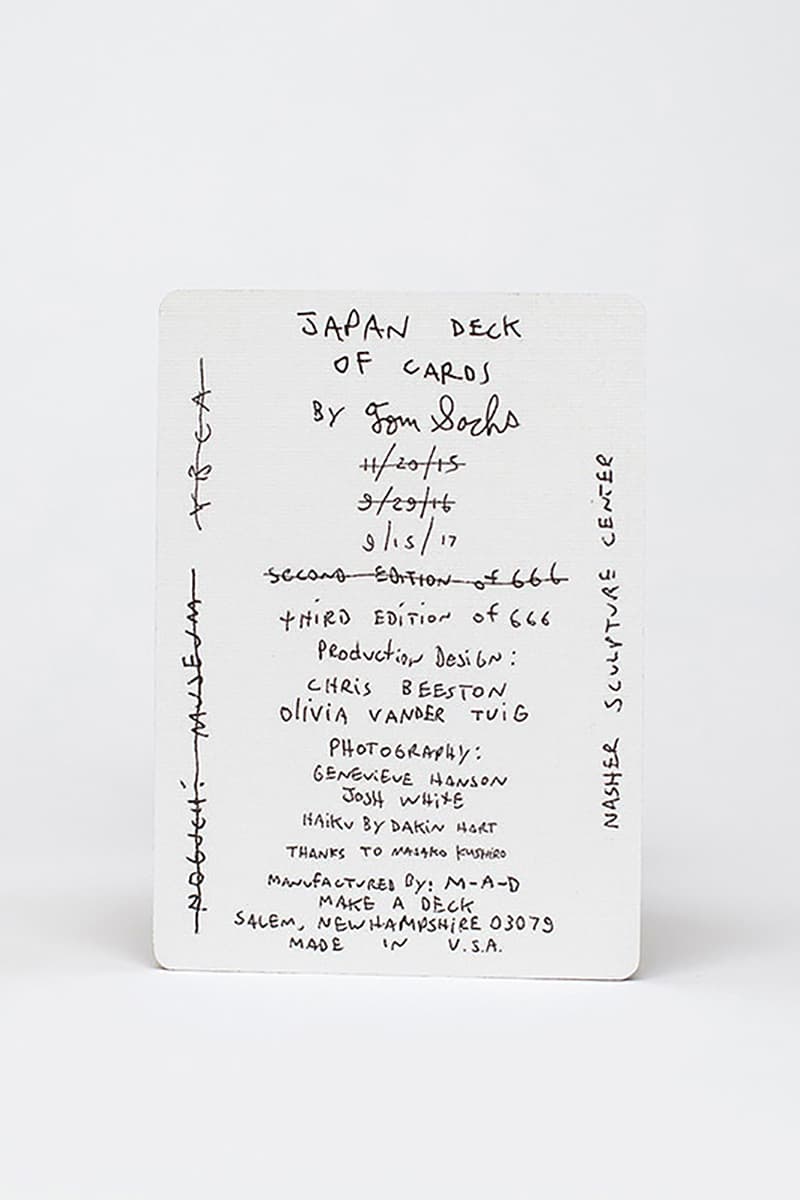 JAPAN DECK
OF CARDS
BY Tom Sachs
11/20/15
9/29/16
9/15/17
SECOND EDITION of 666
tHIRD EDITION of 666
PRoductioN DesiGN:
CHRis BEESTON
OliViA VANDER TUiG
PHOTOGRAPHY:
GENEViEVE HANSON
JOSH WHitE
HAiKU BY DAKiN HART
THANKS TO MASAKO KUSHiRO
MANUfACTURED BY: M-A-D
MAKE A DECK
SALEM, NEWHAMPSHiRE 03079
MADE IN U.S.A.
NOGUCHi MUSEUM YBCA
NASHER SCULPTURE CENTER